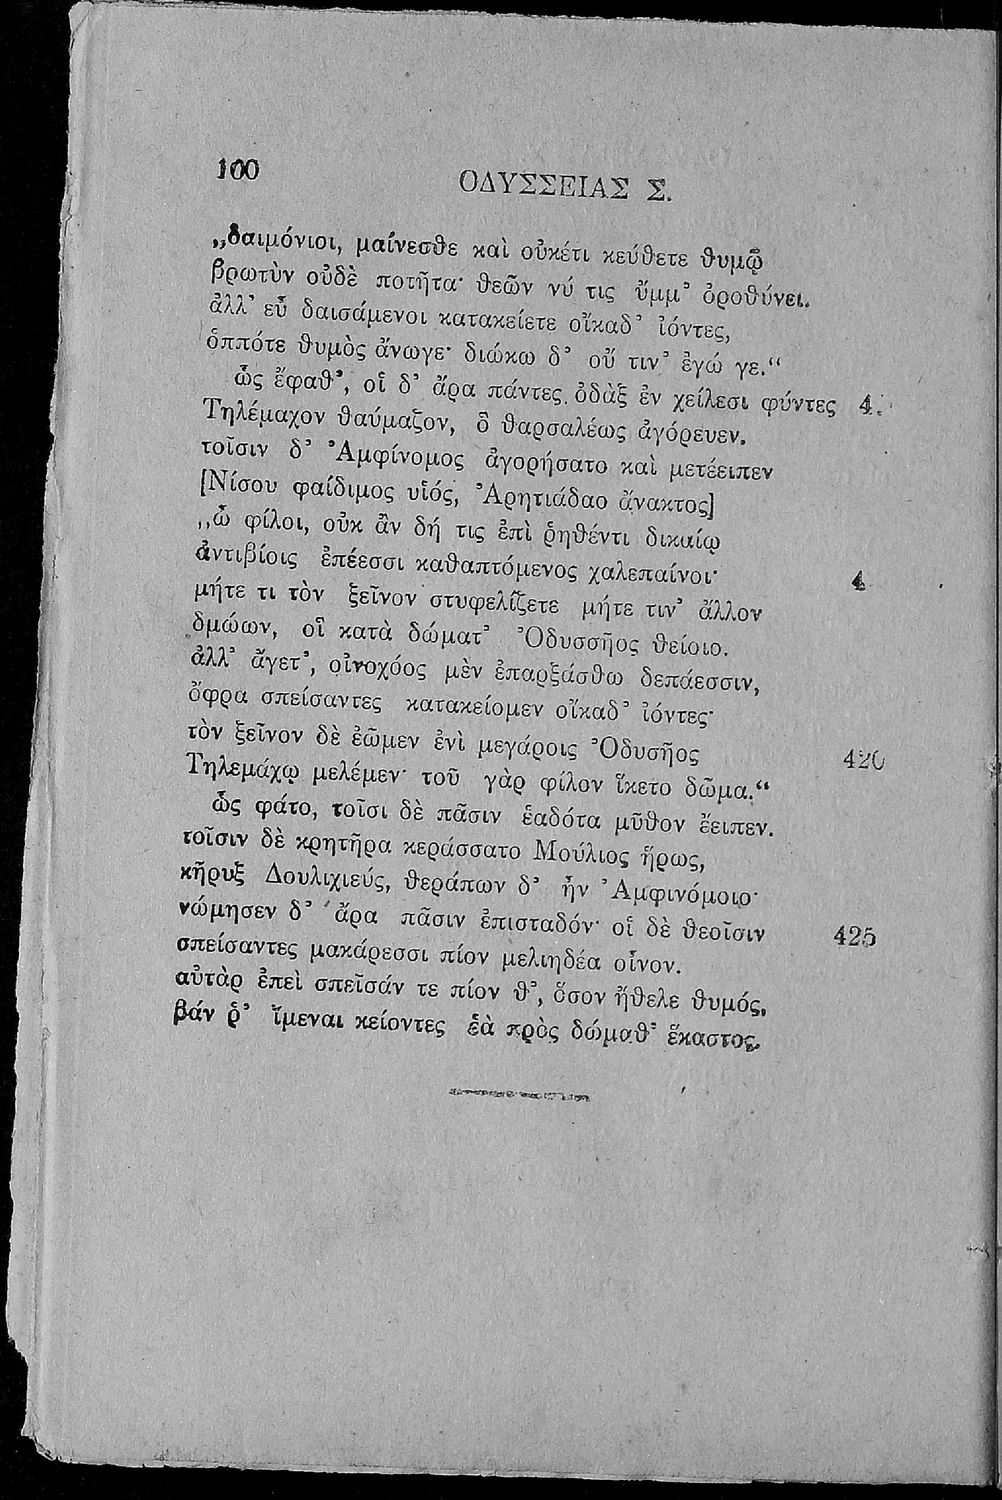 100
ΟΔΥΣΣΕΙΑΣ Σ.
„δαιμόνιοι, μαίνεσθε καὶ οὐκέτι κεύθετε θυμῷ
βρωτὺν οὐδὲ ποτῆτα· θεῶν νύ τις ὔμμ’ ὀροθύνει.
ἀλλ’ εὖ δαισάμενοι κατακείετε οἴκαδ’ ἰόντες,
ὁππότε θυμὸς ἄνωγε· διώκω δ’ οὔ τιν’ ἐγώ γε.“
ὣς ἔφαθ’, οἳ δ’ ἄρα πάντες ὀδὰξ ἐν χείλεσι φύντες 4
Τηλέμαχον θαύμαζον, ὃ θαρσαλέως ἀγόρευεν.
τοῖσιν δ’ Ἀμφίνομος ἀγορήσατο καὶ μετέειπεν
[Νίσου φαίδιμος υἱός, Ἀρητιάδαο ἄνακτος]
„ὦ φίλοι, οὐκ ἂν δή τις ἐπὶ ῥηθέντι δικαίῳ
ἀντιβίοις ἐπέεσσι καθαπτόμενος χαλεπαίνοι· 4
μήτε τι τὸν ξεῖνον στυφελίζετε μήτε τιν’ ἄλλον
δμώων, οἳ κατὰ δώματ’ Ὀδυσσῆος θείοιο.
ἀλλ’ ἄγετ’, οἰνοχόος μὲν ἐπαρξάσθω δεπάεσσιν,
ὄφρα σπείσαντες κατακείομεν οἴκαδ’ ἰόντες·
τὸν ξεῖνον δὲ ἐῶμεν ἐνὶ μεγάροις Ὀδυσῆος 420
Τηλεμάχῳ μελέμεν· τοῦ γὰρ φίλον ἵκετο δῶμα.“
ὣς φάτο, τοῖσι δὲ πᾶσιν ἑαδότα μῦθον ἔειπεν.
τοῖσιν δὲ κρητῆρα κεράσσατο Μούλιος ἥρως,
κῆρυξ Δουλιχιεύς, θεράπων δ’ ἦν Ἀμφινόμοιο·
νώμησεν δ’ ἄρα πᾶσιν ἐπισταδόν· οἳ δὲ θεοῖσιν 425
σπείσαντες μακάρεσσι πίον μελιηδέα οἶνον.
αὐτὰρ ἐπεὶ σπεῖσάν τε πίον θ’, ὅσον ἤθελε θυμός,
βάν ῥ’ ἴμεναι κείοντες ἑὰ πρὸς δώμαθ’ ἕκαστος.